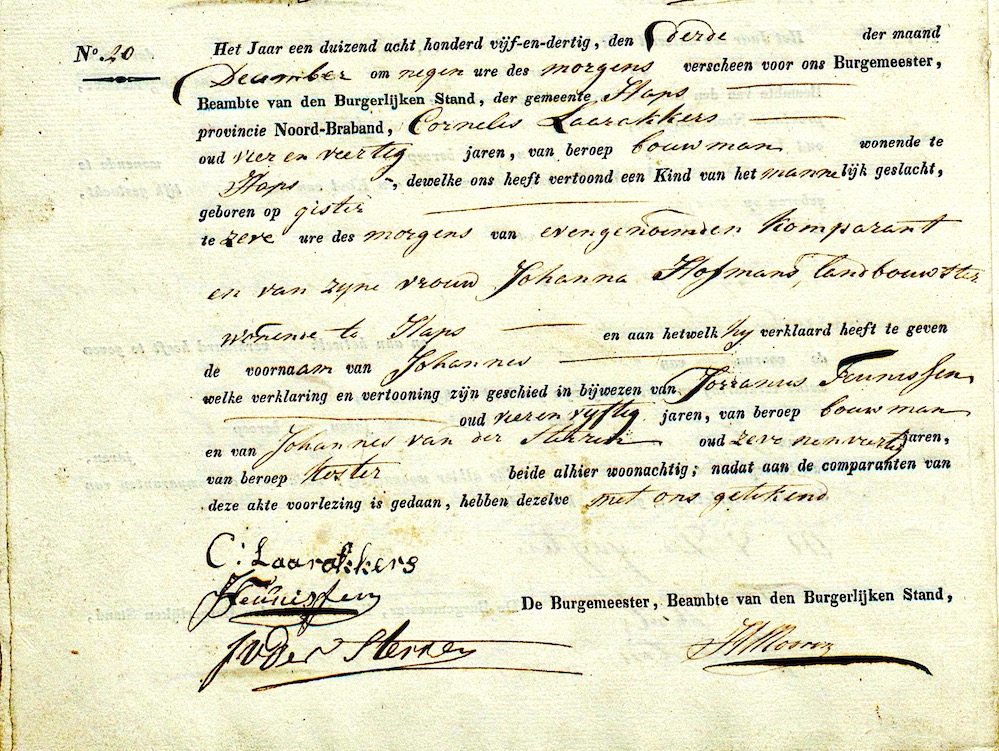 No. 20
Het Jaar een duizend acht honderd vijf-en-dertig, den derde der maand
December om negen ure des morgens verscheen voor ons Burgemeester,
Beambte van den Burgerlijken Stand, der gemeente Haps
provincie Noord-Braband, Cornelis Laarakkers
oud vier en veertig jaren, van beroep bouwman wonende te
Haps, dewelke ons heeft vertoond een Kind van het mannelijk geslacht,
geboren op gister
te zeve ure des morgens van evengenoemden komparant
en van zyne vrouw Johanna Hofmans, landbouwster
wonende te Haps en aan hetwelk hy verklaard heeft te geven
de voornaam van Johannes
welke verklaring en vertooning zijn geschied in bijwezen van Teunissen
oud vier en vyftig jaren, van beroep bouwman
en van Johannes van der Sterren oud zeven en veertig jaren,
van beroep koster beide alhier woonachtig; nadat aan de comparanten van
deze akte voorlezing is gedaan, hebben dezelve met ons getekend
C: Laarakkers
Teunissen
J V Der Sterren
De Burgemeester, Beambte van den Burgerlijken Stand,